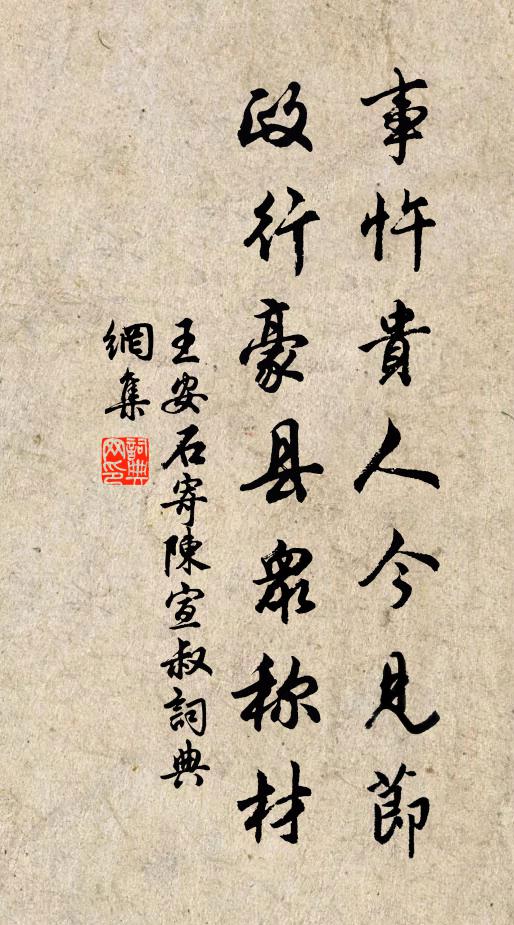 事忤貴人今見節
政行豪县衆称材
王安石寄陳宣叔詞典
網集
詞典网印